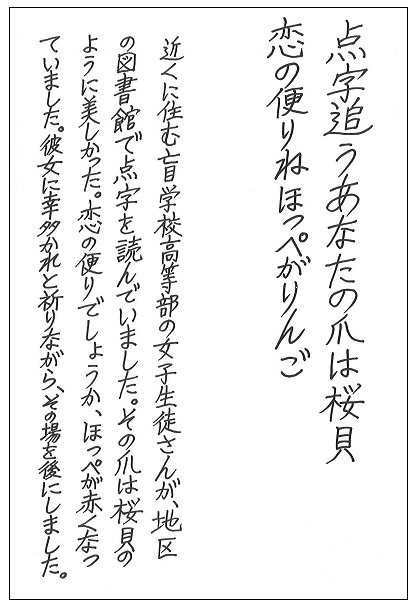 点字追うあなたの爪は桜貝
恋の便りねほっぺがりんご
近くに住む盲学校高等部の女子生徒さんが、地区
の図書館で点字を読んでいました。その爪は桜貝の
ように美しかった。恋の便りでしょうか、ほっぺが赤くなっ
ていました。彼女に幸多かれと祈りながら、その場を後にしました。